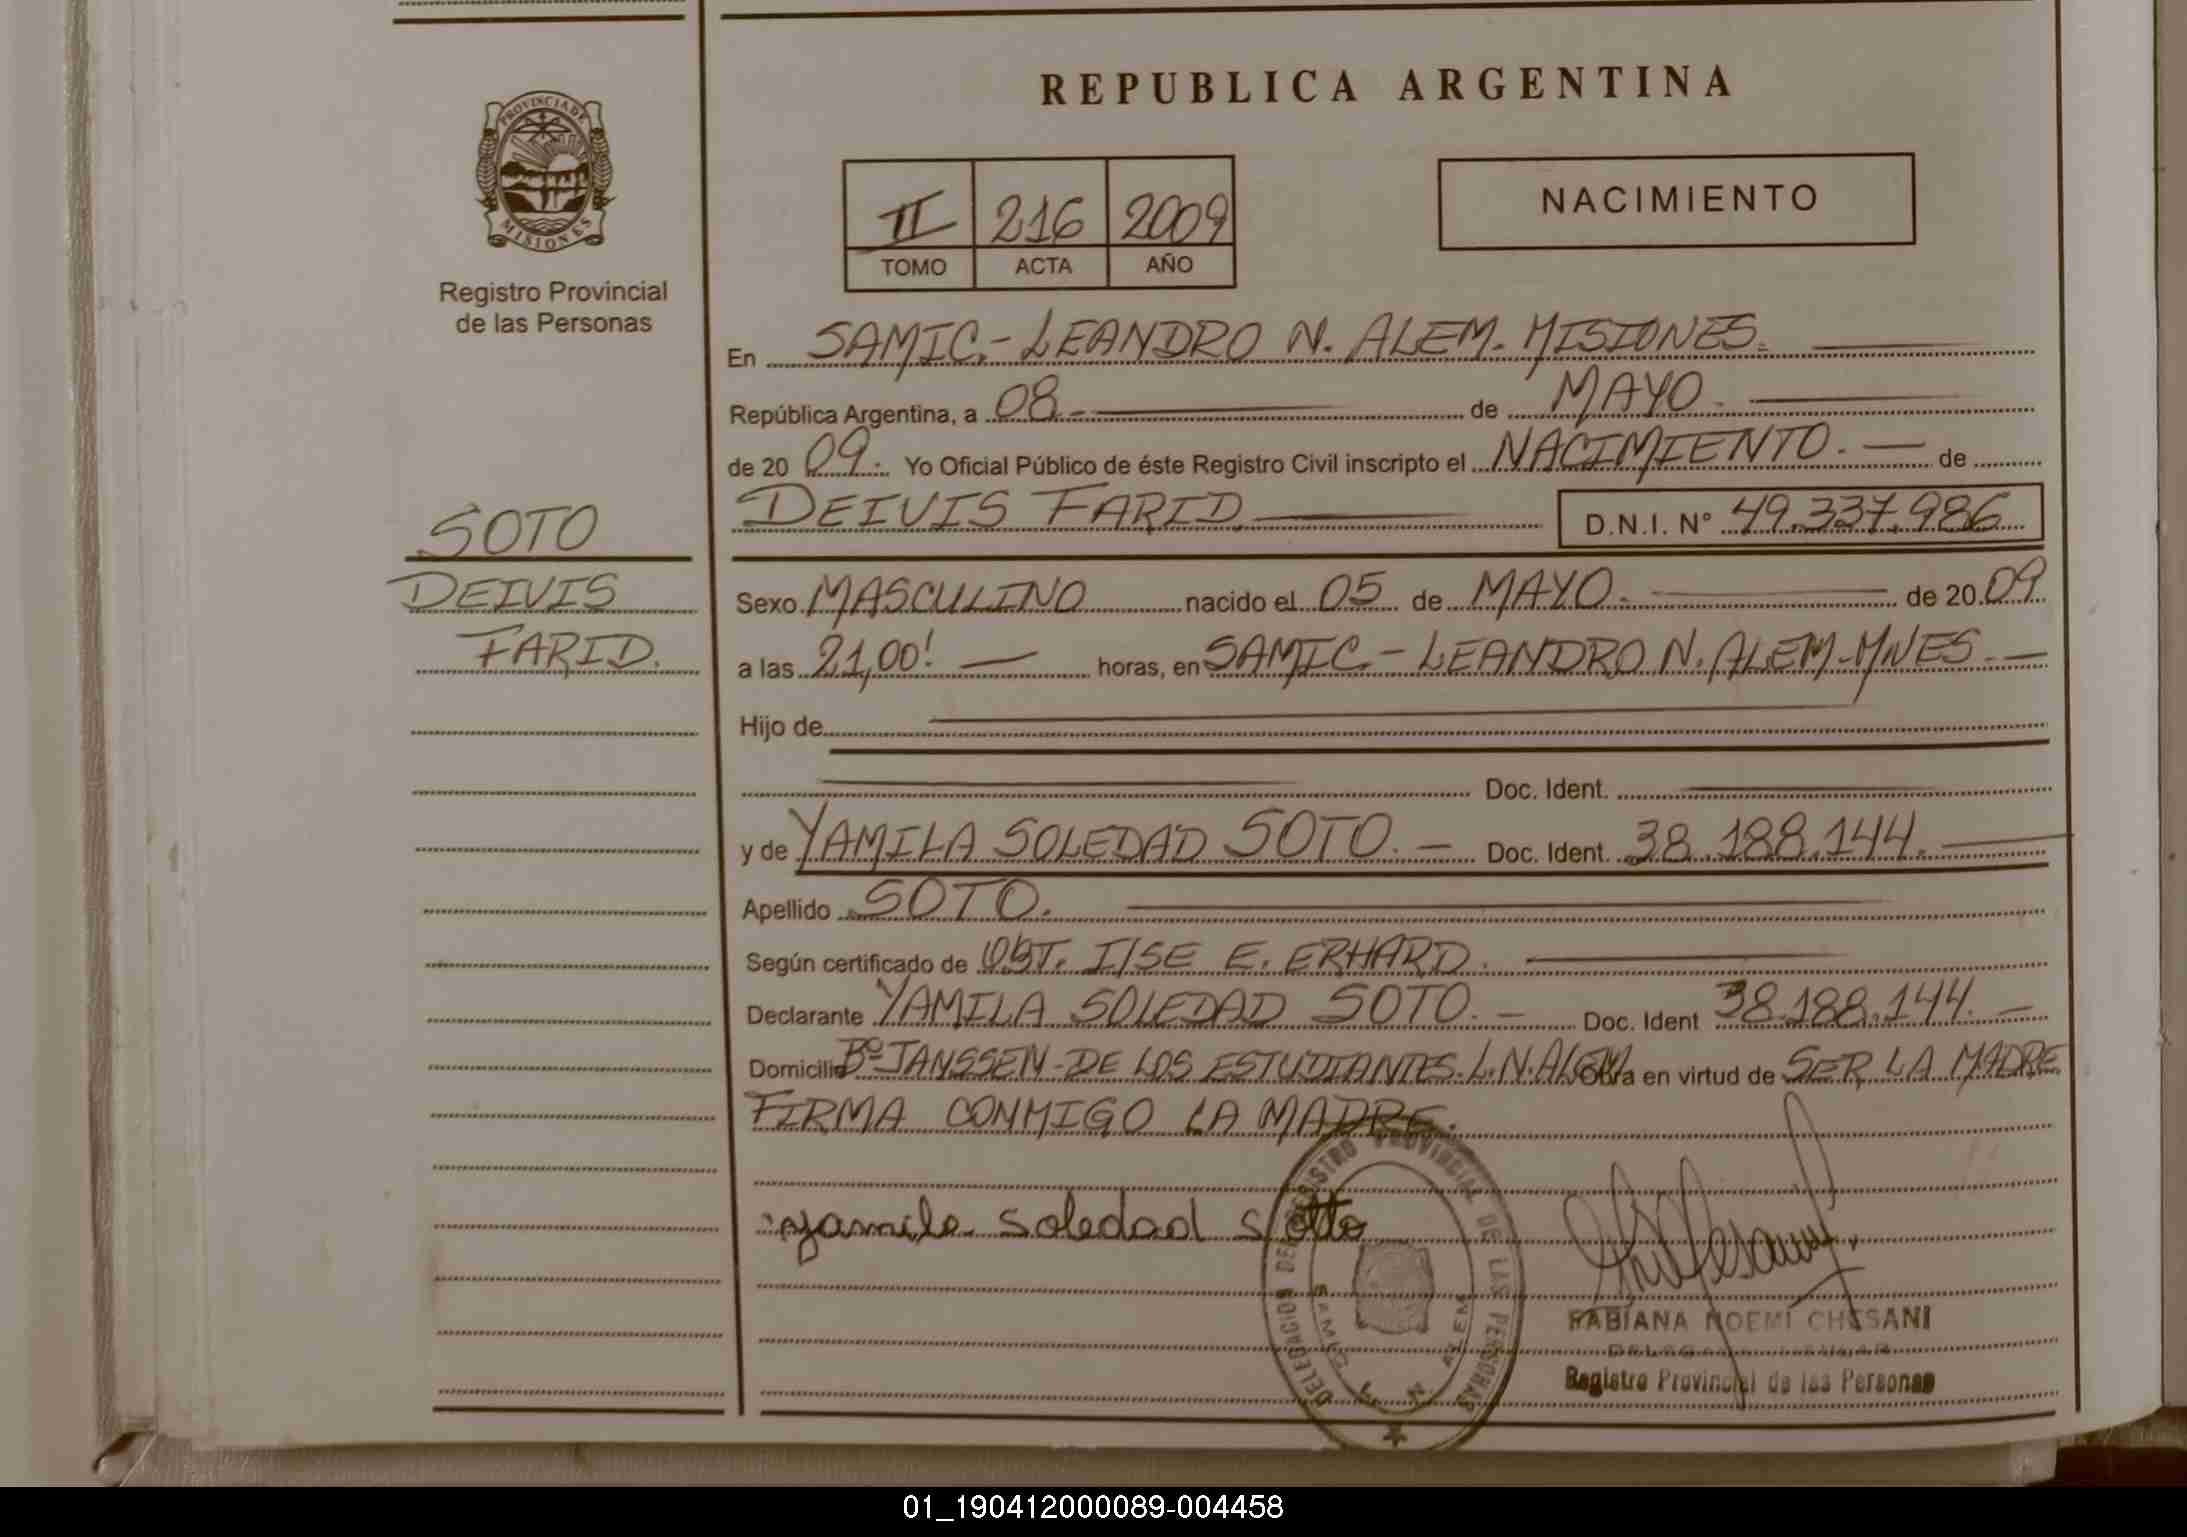 REPUBLICA ARGENTINA
PROVINCIA DE
MISIONES
Registro Provincial
de las Personas
II 216 2009
TOMO ACTA AÑO
NACIMIENTO
En SAMIC.- LEANDRO N. ALEM. MISIONES.
República Argentina, a 08 - de MAYO.
de 20 09. Yo Oficial Público de éste Registro Civil inscripto el NACIMIENTO. — de
DEIVIS FARID D.N.I. N° 49.337.986
SOTO
DEIVIS
FARID.
Sexo MASCULINO nacido el 05 de MAYO. de 20 09
a las 21,00! — horas, en SAMIC.- LEANDRO N. ALEM - MNES. —
Hijo de
Doc. Ident.
y de YAMILA SOLEDAD SOTO. — Doc. Ident. 38.188.144.
Apellido SOTO.
Según certificado de OBT. IISE E. ERHARD.
Declarante YAMILA SOLEDAD SOTO. — Doc. Ident 38.188.144. —
Domicilio Bº JANSSEN - DE LOS ESTUDIANTES. L.N. ALEM Obra en virtud de SER LA MADRE
FIRMA CONMIGO LA MADRE.
yamila soledad sotto
DELEGACION DEL REGISTRO PROVINCIAL DE LAS PERSONAS
SAMIC L N ALEM
FABIANA NOEMI CHESANI
Registro Provincial de las Personas
01_190412000089-004458